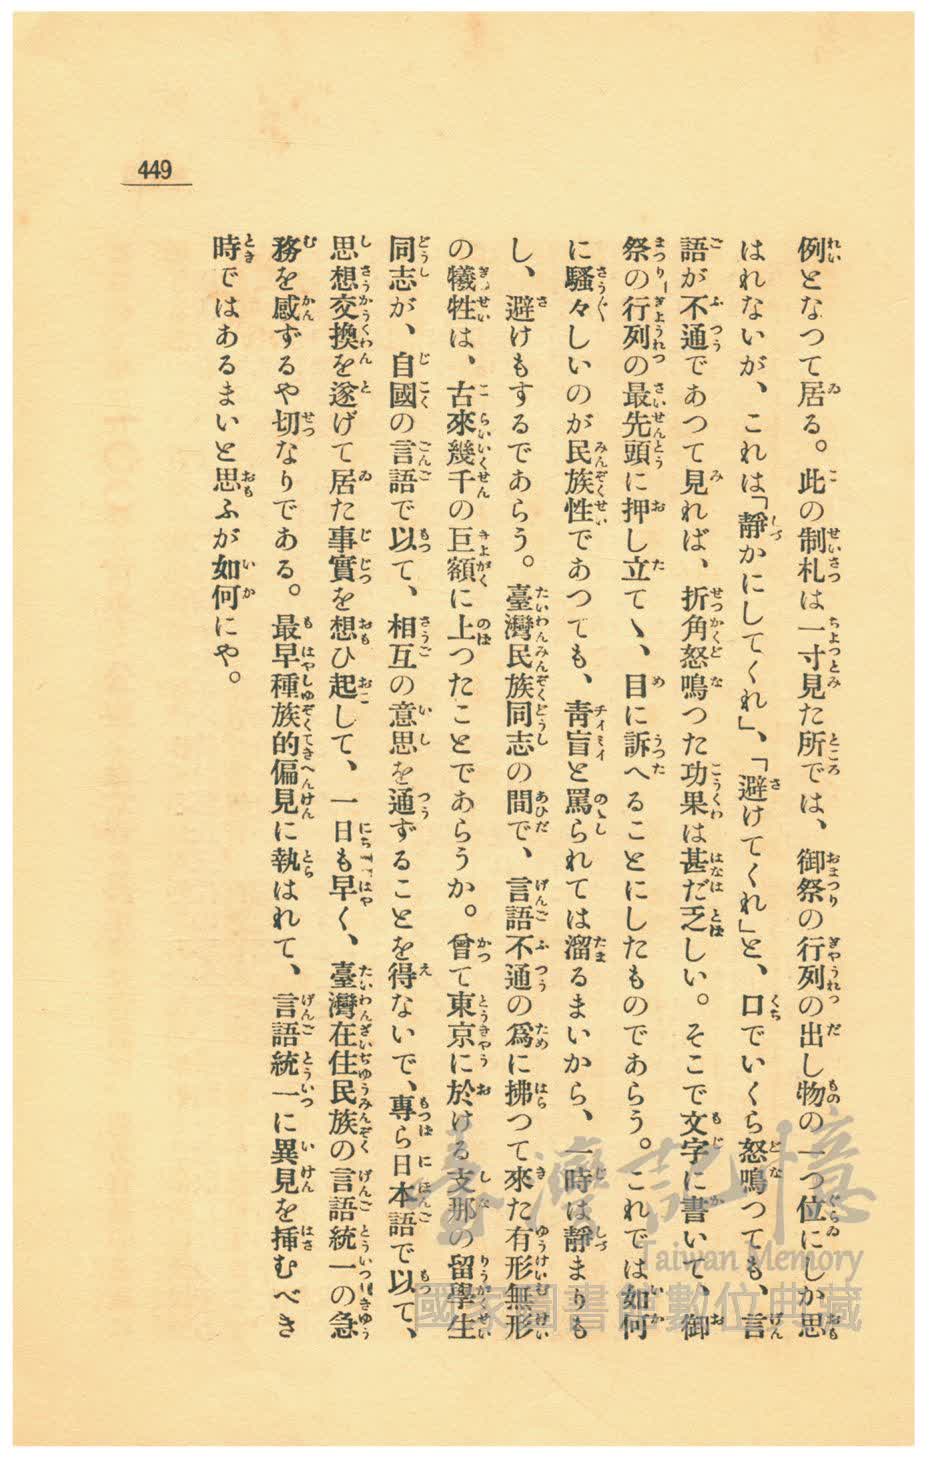 449
例となつて居る。此の制札は一寸見た所では、御祭の行列の出し物の一つ位にしか思
はれないが、これは「靜かにしてくれ」、「避けてくれ」と、口でいくら怒鳴つても、言
語が不通であつて見れば、折角怒鳴つた功果は甚だ乏しい。そこで文字に書いて、御
祭の行列の最先頭に押し立てゝ、目に訴へることにしたものであらう。これでは如何
に騷々しいのが民族性であつても、靑盲と罵られては溜るまいから、一時は靜まりも
し、避けもするであらう。臺灣民族同志の間で、言語不通の爲に拂つて來た有形無形
の犧牲は、古來幾千の巨額に上つたことであらうか。曾て東京に於ける支那の留學生
同志が、自國の言語で以て、相互の意思を通ずることを得ないで、專ら日本語で以て、
思想交換を遂げて居た事實を想ひ起して、一日も早く、臺灣在住民族の言語統一の急
務を感ずるや切なりである。最早種族的偏見に執はれて、言語統一に異見を揷むべき
時ではあるまいと思ふが如何にや。
臺灣記憶
Taiwan Memory
國家圖書館數位典藏